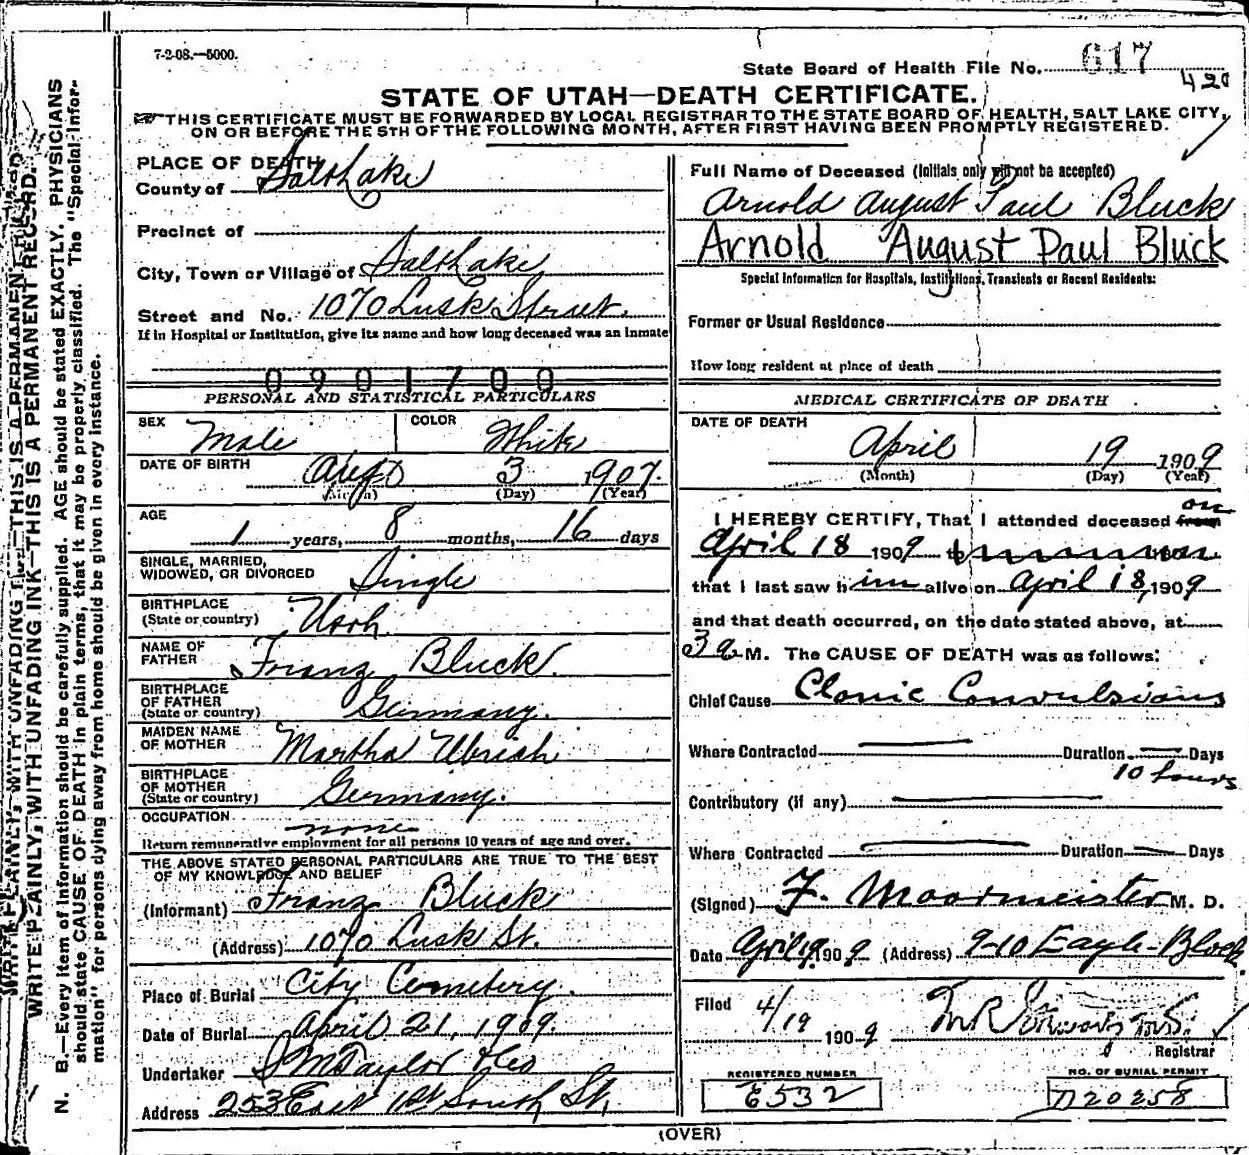 7-2-08.—5000.
State Board of Health File No. 617
420
STATE OF UTAH—DEATH CERTIFICATE.
THIS CERTIFICATE MUST BE FORWARDED BY LOCAL REGISTRAR TO THE STATE BOARD OF HEALTH, SALT LAKE CITY,
ON OR BEFORE THE 5TH OF THE FOLLOWING MONTH, AFTER FIRST HAVING BEEN PROMPTLY REGISTERED.
WRITE PLAINLY, WITH UNFADING INK—THIS IS A PERMANENT RECORD.
N. B.—Every item of information should be carefully supplied. AGE should be stated EXACTLY. PHYSICIANS
should state CAUSE OF DEATH in plain terms, that it may be properly classified. The "Special Infor-
mation" for persons dying away from home should be given in every instance.
PLACE OF DEATH
County of Salt Lake
Precinct of
City, Town or Village of Salt Lake
Street and No. 1070 Lusk Street.
If in Hospital or Institution, give its name and how long deceased was an inmate
0901700
PERSONAL AND STATISTICAL PARTICULARS
SEX Male COLOR White
DATE OF BIRTH Aug 3 1907.
(Day) (Year)
AGE
1 years, 8 months, 16 days
SINGLE, MARRIED,
WIDOWED, OR DIVORCED Single
BIRTHPLACE
(State or country) Utah.
NAME OF
FATHER Franz Bluck.
BIRTHPLACE
OF FATHER
(State or country) Germany.
MAIDEN NAME
OF MOTHER Martha
BIRTHPLACE
OF MOTHER
(State or country) Germany.
OCCUPATION
none
Return remunerative employment for all persons 10 years of age and over.
THE ABOVE STATED PERSONAL PARTICULARS ARE TRUE TO THE BEST
OF MY KNOWLEDGE AND BELIEF
(Informant) Franz Bluck
(Address) 1070 Lusk St.
Place of Burial City Cemetery.
Date of Burial April 21, 1909.
Undertaker S M Taylor & Co
Address 253 East 1st South St.
Full Name of Deceased (Initials only will not be accepted)
Arnold August Paul Bluck
Arnold August Paul Bluck
Special Information for Hospitals, Institutions, Transients or Recent Residents:
Former or Usual Residence
How long resident at place of death
MEDICAL CERTIFICATE OF DEATH
DATE OF DEATH
April 19 1909
(Month) (Day) (Year)
I HEREBY CERTIFY, That I attended deceased from on
April 18 1909 to
that I last saw him alive on April 18, 1909
and that death occurred, on the date stated above, at
3 a M. The CAUSE OF DEATH was as follows:
Chief Cause Clonic Convulsions
Where Contracted Duration Days
10 hours
Contributory (if any)
Where Contracted Duration Days
(Signed) F. Moormeister M. D.
Date April 19 1909 (Address) 9-10 Eagle-Block.
Filed 4/19 1909
Registrar
REGISTERED NUMBER
E532
NO. OF BURIAL PERMIT
D20258
(OVER)